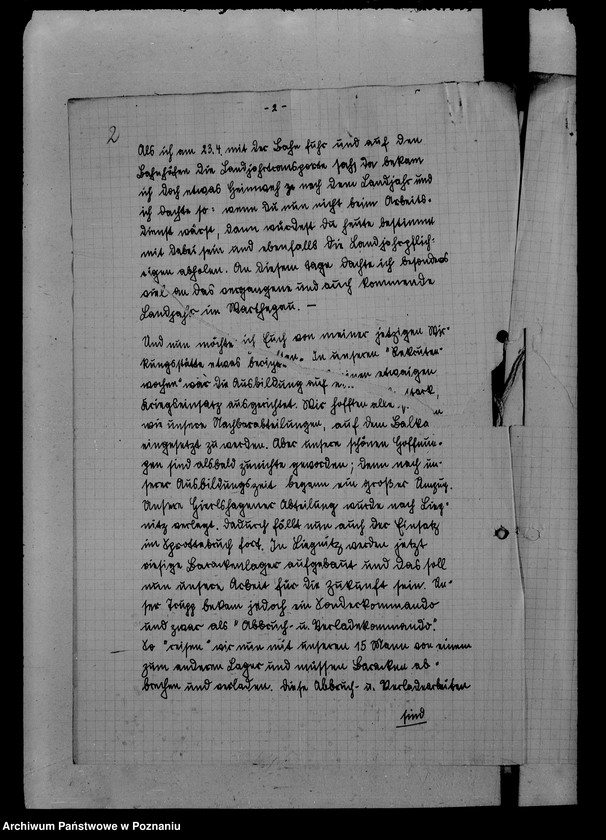 - 2 -
2
Als ich am 23.4. mit der Bahn fuhr und auf den
Bahnhöfen die Landjahrtransporte sah, da bekam
ich doch etwas Heimweh nach dem Landjahr und
ich dachte so: wenn du nun nicht beim Arbeits-
dienst wärst, dann würdest du heute bestimmt
mit dabei sein und ebenfalls die Landjahrpflich-
tigen abholen. An diesem Tage dachte ich besonders
viel an das vergangene und auch kommende
Landjahr im Warthegau. —
Und nun möchte ich Euch von meiner jetzigen Wir-
kungsstätte etwas berichten. In unseren "Rekruten-
wochen" war die Ausbildung auf einen etwaigen
stark,
Kriegseinsatz ausgerichtet. Wir hofften alle
wie unsere Nachbarabteilungen, auf dem Balkan
eingesetzt zu werden. Aber unsere schönen Hoffnun-
gen sind alsbald zunichte geworden; denn nach un-
serer Ausbildungszeit begann ein großer Umzug.
Unsere Abteilung wurde nach Lieg-
nitz verlegt. Dadurch fällt nun auch der Einsatz
im Sprottebruch fort. In Liegnitz werden jetzt
riesige Barackenlager aufgebaut und das soll
nun unsere Arbeit für die Zukunft sein. Un-
ser Trupp bekam jedoch ein Sonderkommando
und zwar als "Abbruch- u. Verladekommando".
So "reisen" wir nun mit unseren 15 Mann von einem
zum anderen Lager und müssen Baracken ab-
brechen und verladen. Diese Abbruch- u. Verladearbeiten
sind
Archiwum Państwowe w Poznaniu